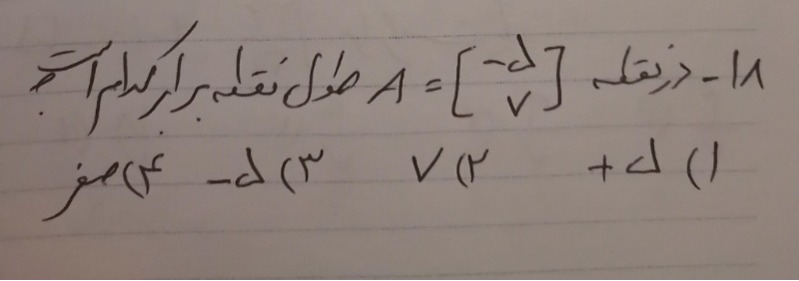 ۱۸- در نقطه A = [-۵ ۷] طول نقطه برابر کدام است؟
۱) +۵ ۲) ۷ ۳) -۵ ۴) صفر